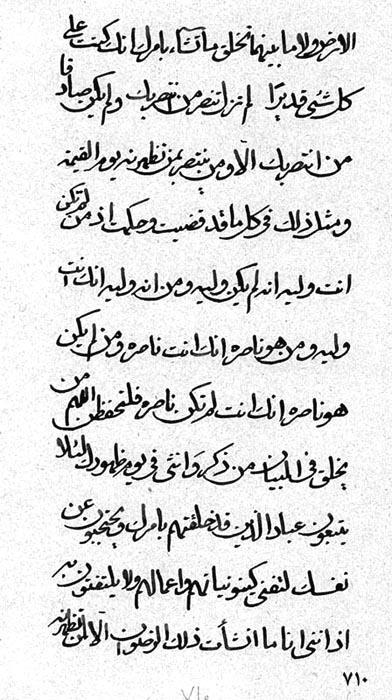 الارض ولا ما بينهما تخلق ما تشاء بامرك انك كنت على
كل شئ قديرا لم تزل تنصر من ينتصر بك ولم يكن صادقا
من انتصر بك الا ومن ينتصر بمن تظهرنه يوم القيمة
ومثل ذلك في كل ما قد قضيت وحكمت اذ من لم تكن
انت وليه انه لم يكن وليه ومن انه وليه انك انت
وليه ومن هو ناصره إنك انت ناصره ومن لم يكن
هو ناصره إنك انت لم تكن ناصره فلتحفظن اللهم من
يخلق في البيان من ذكر وانثى في يوم ظهورك لئلا
يتبعون عباد الذين قد خلقتهم بامرك ويحتجبون عن
نفسك لتفنى كينونياتهم واعمالهم ولا يلتفتون به
اذ انني انا ما انشأت ذلك الرضوان الا لمن تظهرنه
٧١٠
٧١٠